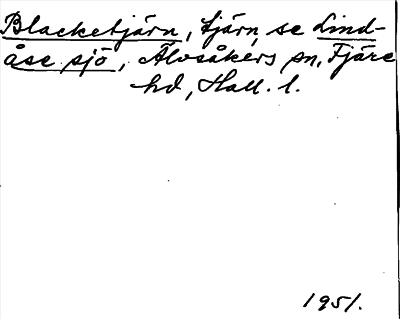 Blacketjärn, tjärn, se Lind-
åse sjö, Älvsåkers sn, Fjäre
hd, Hall. l.
1951.